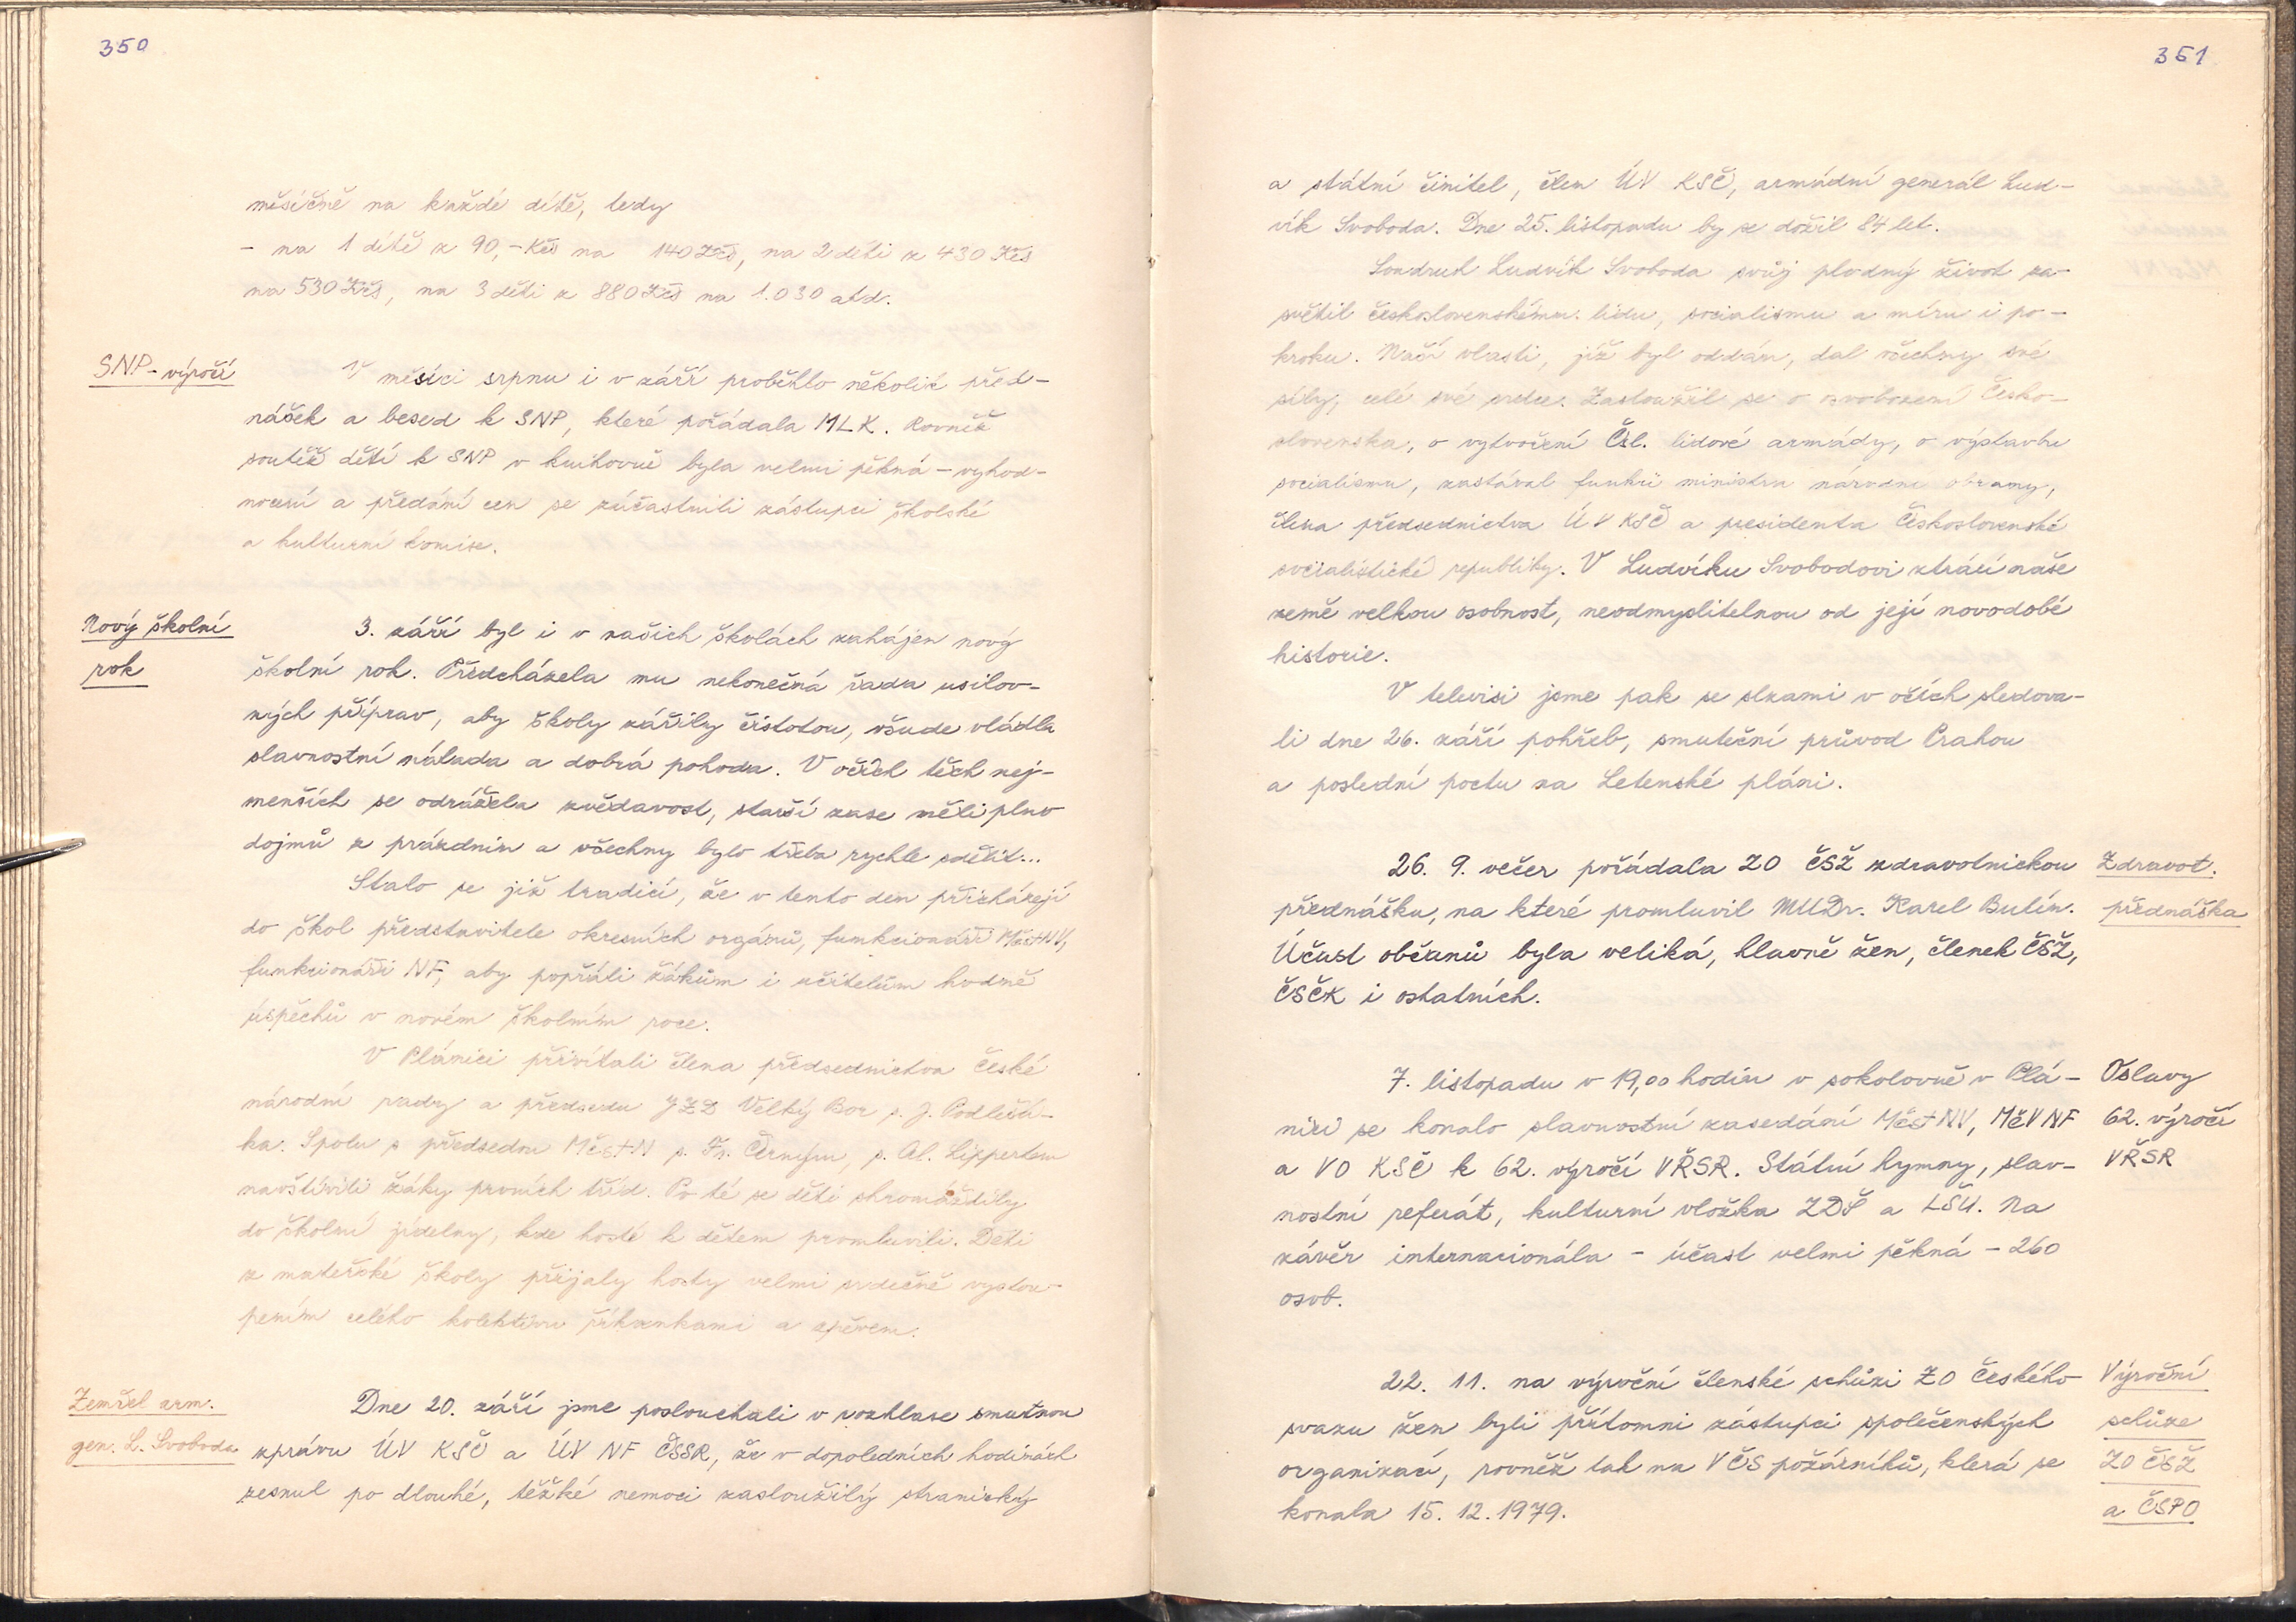 350
měsíčně na každé dítě, tedy
- na 1 dítě z 90,- Kčs na 140 Kčs, na 2 děti z 430 Kčs
na 530 Kčs, na 3 děti z 880 Kčs na 1.030 atd.
SNP - výročí
V měsíci srpnu i v září proběhlo několik před-
nášek a besed k SNP, které pořádala MLK. Rovněž
soutěž dětí k SNP v knihovně byla velmi pěkná - vyhod-
nocení a předání cen se zúčastnili zástupci školské
a kulturní komise.
Nový školní
rok
3. září byl i v našich školách zahájen nový
školní rok. Předcházela mu nekonečná řada usilov-
ných příprav, aby školy zářily čistotou, všude vládla
slavnostní nálada a dobrá pohoda. V očích těch nej-
menších se odrážela zvědavost, starší zase měli plno
dojmů z prázdnin a všechny bylo třeba rychle sdělit...
Stalo se již tradicí, že v tento den přicházejí
do škol představitele okresních orgánů, funkcionáři MěstNV,
funkcionáři NF, aby popřáli žákům i učitelům hodně
úspěchů v novém školním roce.
V Plánici přivítali člena předsednictva České
národní rady a předsedu JZD Velký Bor s. J. Podlešá-
ka. Spolu s předsedou MěstN s. Fr. Černým, s. Al. Lippertem
navštívili žáky prvních tříd. Po té se děti shromáždily
do školní jídelny, kde hosté k dětem promluvili. Děti
z mateřské školy přijaly hosty velmi srdečně vystou-
pením celého kolektivu říkankami a zpěvem.
Zemřel arm.
gen. L. Svoboda
Dne 20. září jsme poslouchali v rozhlase smutnou
zprávu ÚV KSČ a ÚV NF ČSSR, že v dopoledních hodinách
zesnul po dlouhé, těžké nemoci zasloužilý stranický
351
a státní činitel, člen ÚV KSČ, armádní generál Lud-
vík Svoboda. Dne 25. listopadu by se dožil 84 let.
Soudruh Ludvík Svoboda svůj plodný život za-
světil československému lidu, socialismu a míru i po-
kroku. Naší vlasti, jíž byl oddán, dal všechny své
síly, celé své srdce. Zasloužil se o osvobození Česko-
slovenska, o vytvoření Čsl. lidové armády, o výstavbu
socialismu, zastával funkci ministra národní obrany,
člena předsednictva ÚV KSČ a presidenta Československé
socialistické republiky. V Ludvíku Svobodovi ztrácí naše
země velkou osobnost, neodmyslitelnou od její novodobé
historie.
V televisi jsme pak se slzami v očích sledova-
li dne 26. září pohřeb, smuteční průvod Prahou
a poslední poctu na Letenské pláni.
26. 9. večer pořádala ZO ČSŽ zdravotnickou
přednášku, na které promluvil MUDr. Karel Bulín.
Účast občanů byla veliká, hlavně žen, členek ČSŽ,
ČSČK i ostatních.
Zdravot.
přednáška
7. listopadu v 19,00 hodin v sokolovně v Plá-
nici se konalo slavnostní zasedání MěstNV, MěV NF
a VO KSČ k 62. výročí VŘSR. Státní hymny, slav-
nostní referát, kulturní vložka ZDŠ a LŠU. Na
závěr internacionála - účast velmi pěkná - 260
osob.
Oslavy
62. výročí
VŘSR
22. 11. na výroční členské schůzi ZO Českého
svazu žen byli přítomni zástupci společenských
organizací, rovněž tak na VČS požárníků, která se
konala 15. 12. 1979.
Výroční
schůze
ZO ČSŽ
a ČSPO